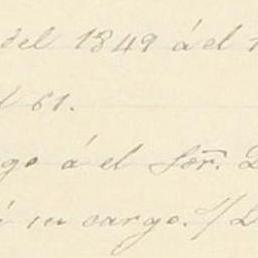 del 1849 á el 1
l 61.
go á el Sor. D
á su cargo. // D